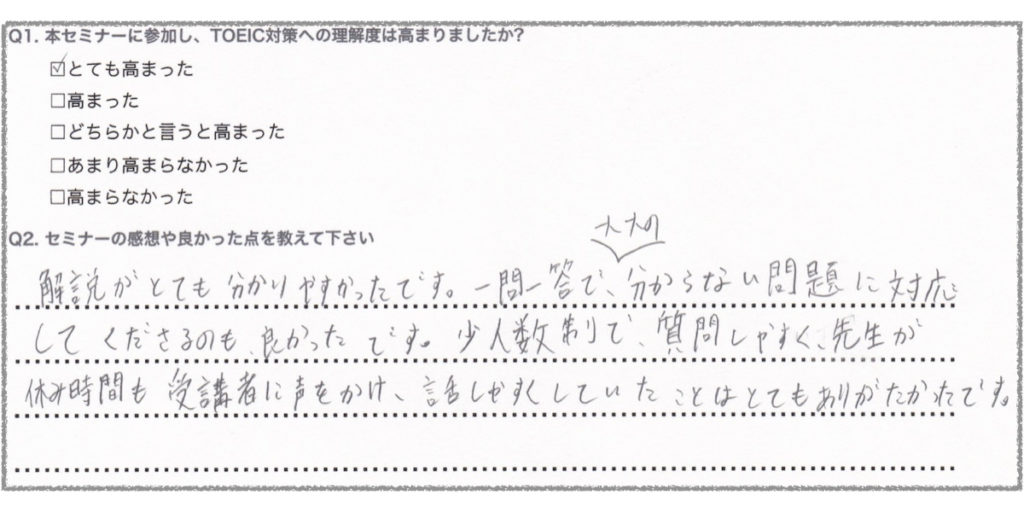 Q1. 本セミナーに参加し、TOEIC対策への理解度は高まりましたか?
☑とても高まった
□高まった
□どちらかと言うと高まった
□あまり高まらなかった
□高まらなかった
Q2. セミナーの感想や良かった点を教えて下さい
人々の
解説がとても分かりやすかったです。一問一答で、分からない問題に対応
してくださるのも、良かったです。少人数制で、質問しやすく、先生が
休み時間も受講者に声をかけ、話しやすくしていたことはとてもありがたかったです。